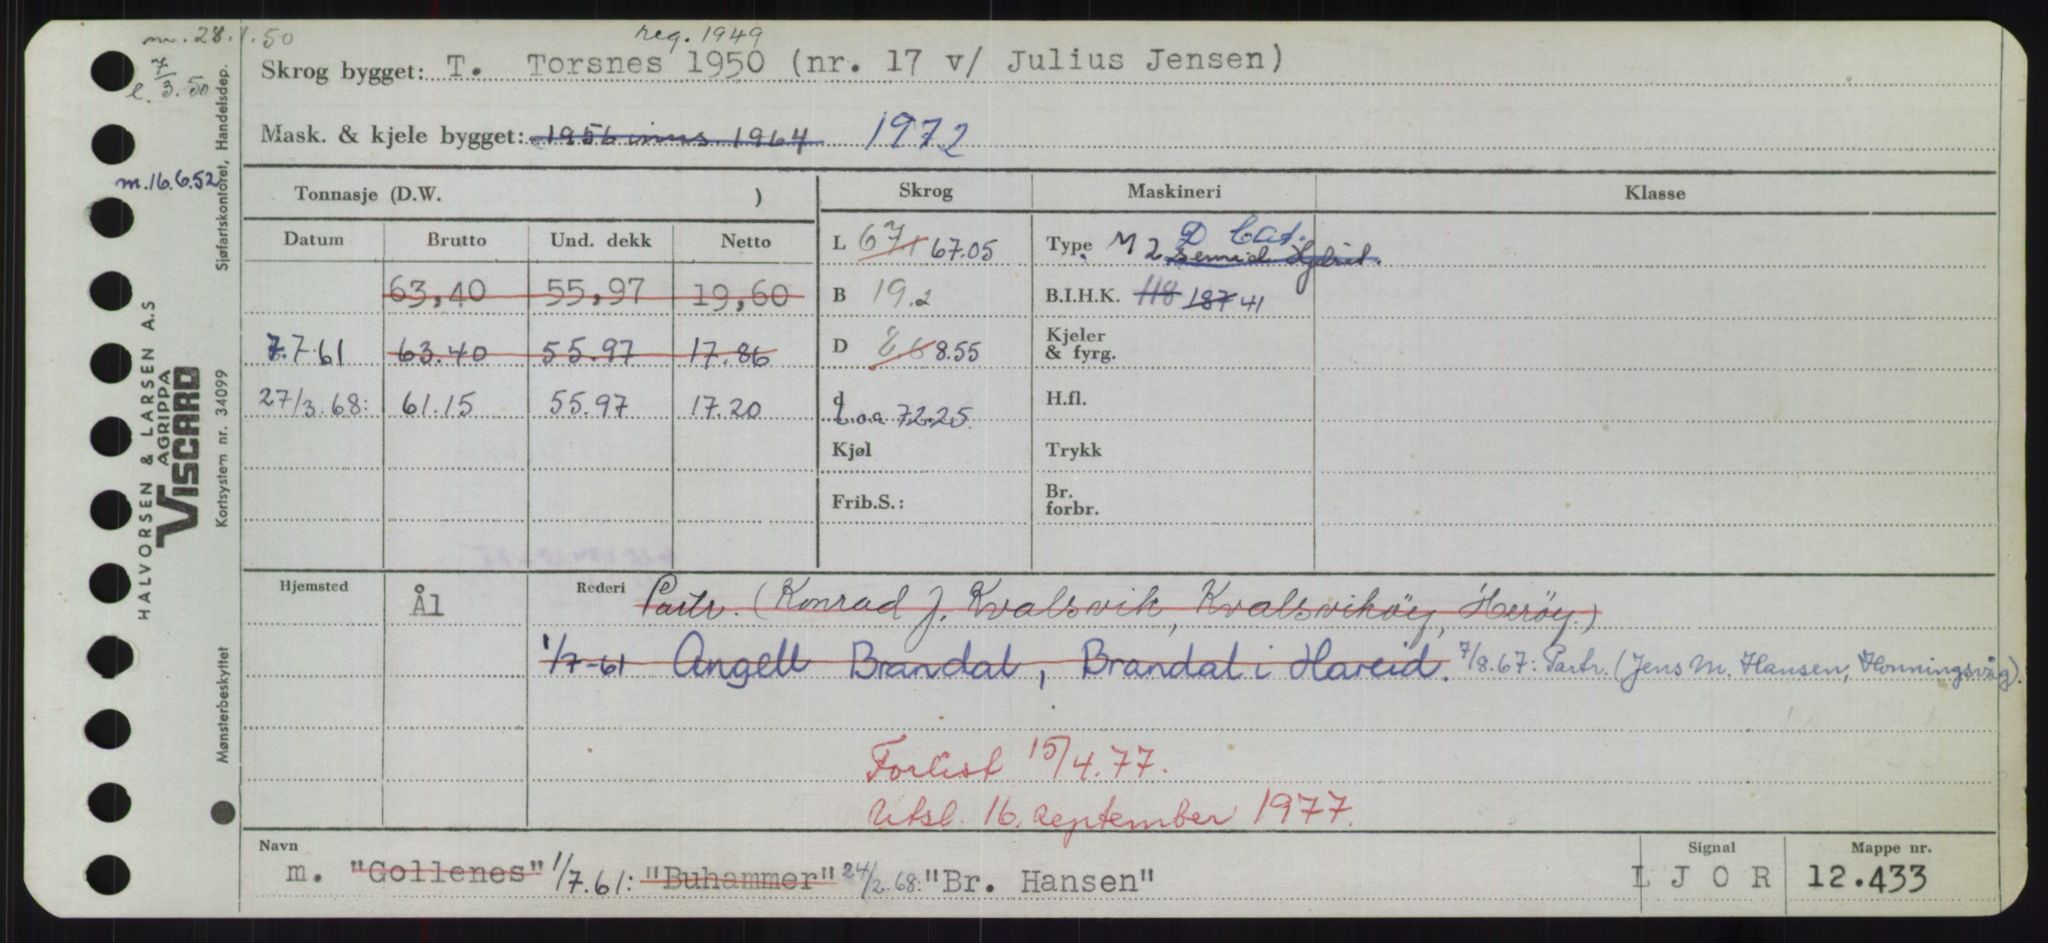 m. 28.1.50
reg. 1949
Skrog bygget: T. Torsnes 1950 (nr. 17 v/ Julius Jensen)
7/3.50
Mask. & kjele bygget: 1956 1964 1972
m.16.6.52
Tonnasje (D.W. )
Skrog
Maskineri
Klasse
Datum
Brutto
Und. dekk
Netto
L 67.1 67.05
Type M 2 D Cat.
63,40 55,97 19,60
B 19.2
B.I.H.K. 118 187 41
7.7 61 63.40 55.97 17.86
D 8.6 8.55
Kjeler & fyrg.
27/3.68: 61.15 55.97 17.20
d
L.o.a 72.25
H.fl.
Kjøl
Trykk
Frib.S.:
Br. forbr.
Hjemsted
Ål
Rederi
Partr. (Konrad J. Kvalsvik, Kvalsvikøy, Herøy.)
1/7-61 Angell Brandal, Brandal i Hareid. 7/8.67: Partr. (Jens M. Hansen, Honningsvåg).
Forlist 15/4.77.
Utsl. 16. september 1977.
Navn
m. "Gollenes" 1/7.61: "Buhammer" 24/2.68: "Br. Hansen"
Signal
L J O R
Mappe nr.
12.433
HALVORSEN & LARSEN A.S
AGRIPPA
VISCARD
Sjøfartskontoret, Handelsdep.
Kortsystem nr. 34099
Mønsterbeskyttet